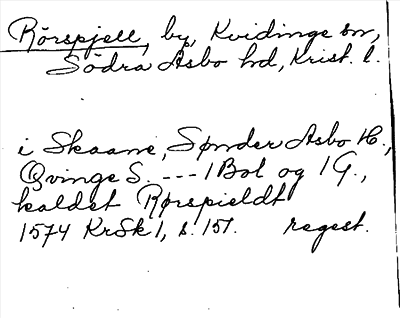 Rörspjell, by, Kvidinge sn,
Södra Åsbo hd, Krist. l.
i Skaane, Sønder Asbo H.,
Qvinge S. --- 1 Bol og 1 G.,
kaldet Rørspieldt
1574 KrSk 1, s. 157. regest.